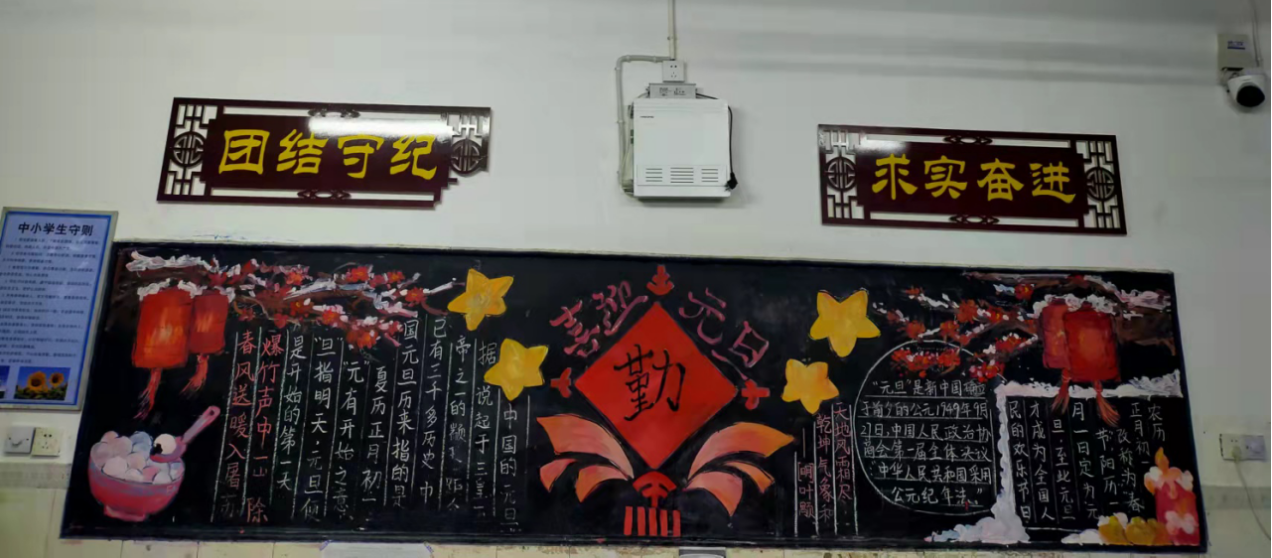 团结守纪
求实奋进
中小学生守则
喜迎元旦
勤
中国的元旦
据说起于三皇五
帝之一的颛顼,距今
已有三千多历史,中
国元旦历来指的是
夏历正月初一
"元"有开始之意
"旦指明天,元旦
是开始的第一天
爆竹声中一 除
春风送暖入屠苏
天地风霜尽
乾坤气象和
明 叶颙
"元旦"是新中国
于前夕的公元1949年9月
21日,中国人民政治协
商会第一届全体决议
"中华人民共和国采用
公元纪年法。"
农历
正月初一
改称为"春
节",阳历一
月一日定为元
旦,至此元旦
才成为全国人
民的欢乐节日